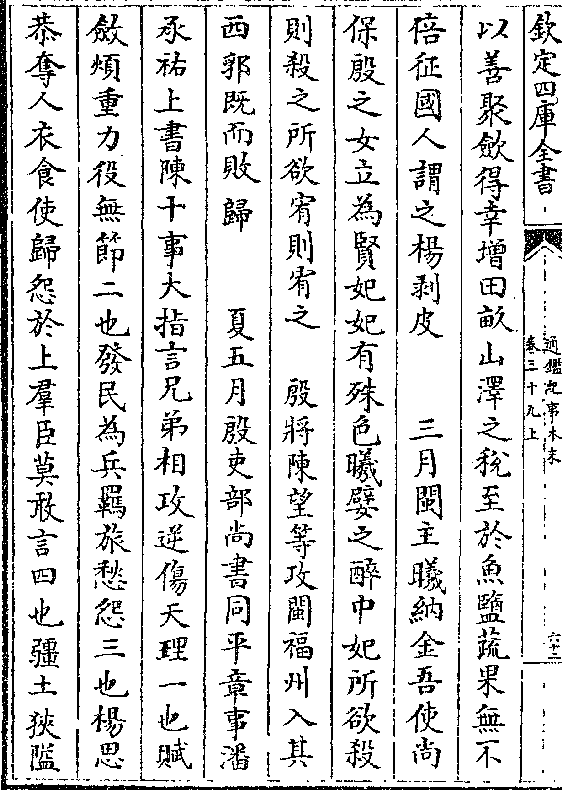 欽定四庫全書
通鑑紀事本末
卷三十九上
六十二
以善聚斂得幸增田畝山澤之稅至於魚鹽蔬果無不
倍征國人謂之楊剥皮　三月閩主曦納金吾使尚
保殷之女立為賢妃妃有殊色曦嬖之醉中妃所欲殺
則殺之所欲宥則宥之　殷將陳望等攻閩福州入其
西郛既而敗歸　夏五月殷吏部尚書同平章事潘
承祐上書陳十事大指言兄弟相攻逆傷天理一也賦
斂煩重力役無節二也發民為兵羈旅愁怨三也楊思
恭奪人衣食使歸怨於上羣臣莫敢言四也疆土狹隘